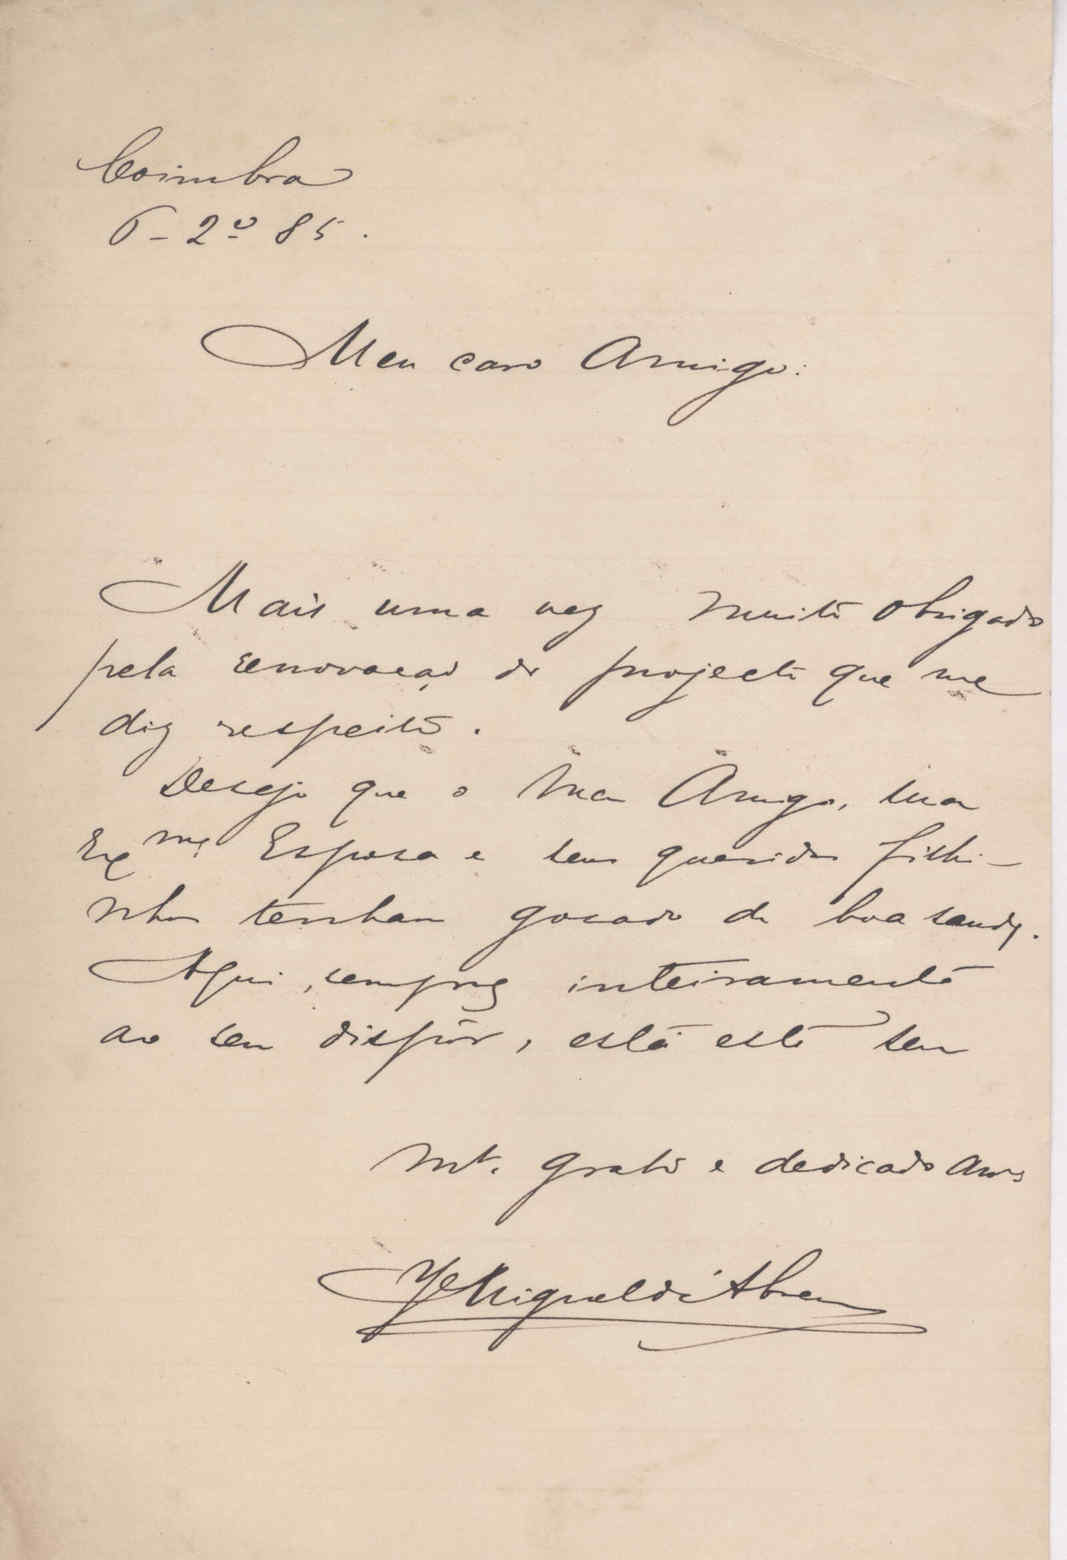 Coimbra
6-2º 85.
Meu caro Amigo:
Mais uma vez muito obrigado
pela renovação do projecto que me
diz respeito.
Desejo que o Meu Amigo, sua
Exmª Esposa e seus queridos filhi-
nhos tenham gosado de boa saude.
Aqui, sempre inteiramente
ao seu dispôr, está este seu
Mt. grato e dedicado Amº
Miguel d'Abreu